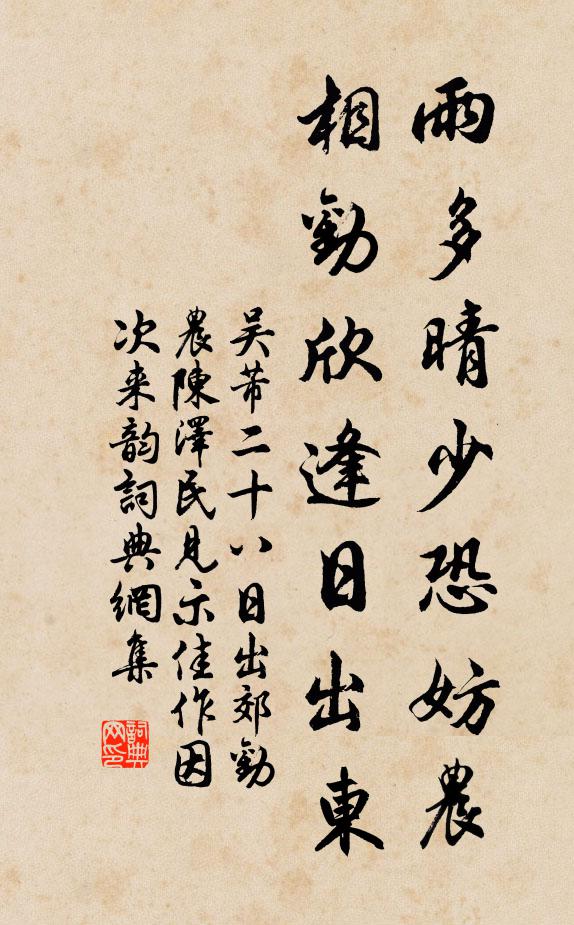 雨多晴少恐妨農
相勸欣逢日出東
吴芾二十八日出郊勸
農陳澤民見示佳作因
次来韵詞典網集
詞典
网印